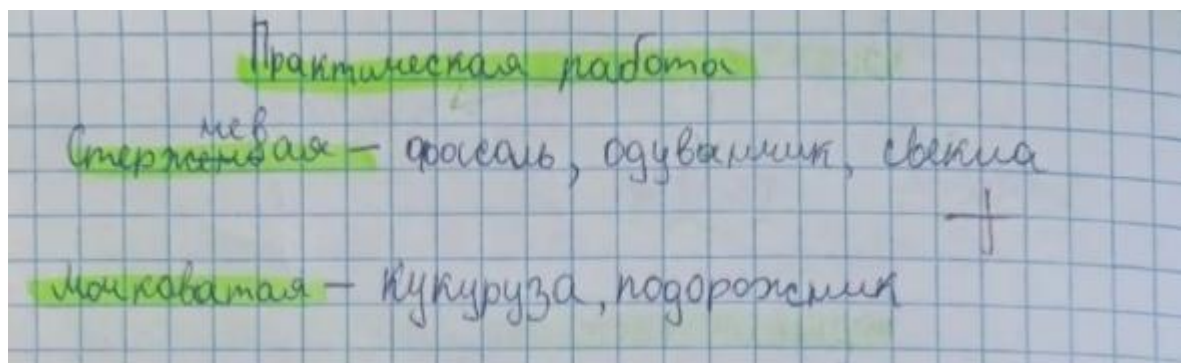 Практическая работа
Стержневая – фасоль, одуванчик, свекла
+
Мочковатая – кукуруза, подорожник